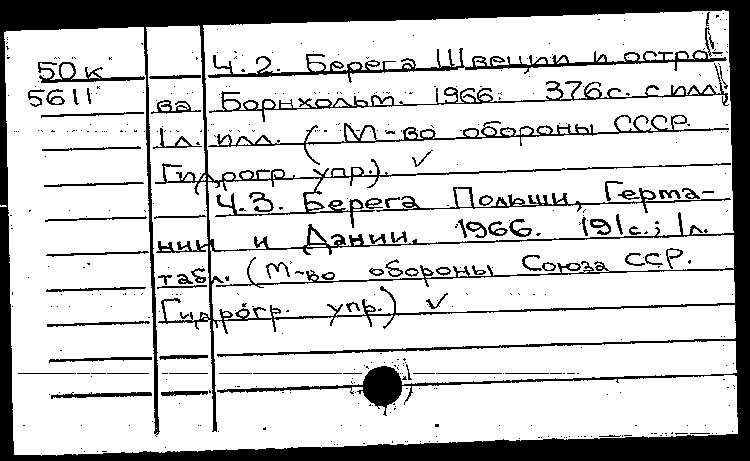 50к Ч.2. Берега Швеции и остро-
5611 ва Борнхольм. 1966. 376с. с илл.;
1л. илл. (М-во обороны СССР.
Гидрогр. упр.). ✓
Ч.3. Берега Польши, Герма-
нии и Дании. 1966. 191с.; 1л.
табл. (М-во обороны Союза ССР.
Гидрогр. упр.) ✓